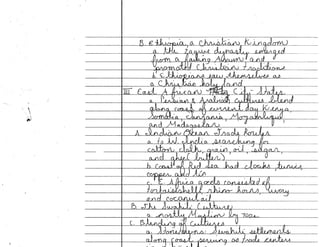 B. Ethiopia, a Christian Kingdom
a. the Zagwe dynasty emerged
from a falling Axum and
promoted Christian traditions
b. Ethiopians saw themselves as
a Christian holy land
III East African City States
a. Persian & Arabic cultures blend
along coast of current day Kenya,
Somalia, Tanzania, Mozambique,
and Madagascar
A. Indian Ocean Trade Routes
a. to W. India searching for
cotton cloth, grain, oil, sugar,
and ghee (butter)
b. coast of Red Sea had cloaks, tunics,
copper and tin
c. E. Africa goods consisted of
tortoise shell, rhino horns, ivory
and coconut oil
B. The Swahili Culture
a. mostly Muslim by
C. Blending of Cultures
a. Swahili settlements
along coast, serving as trade centers